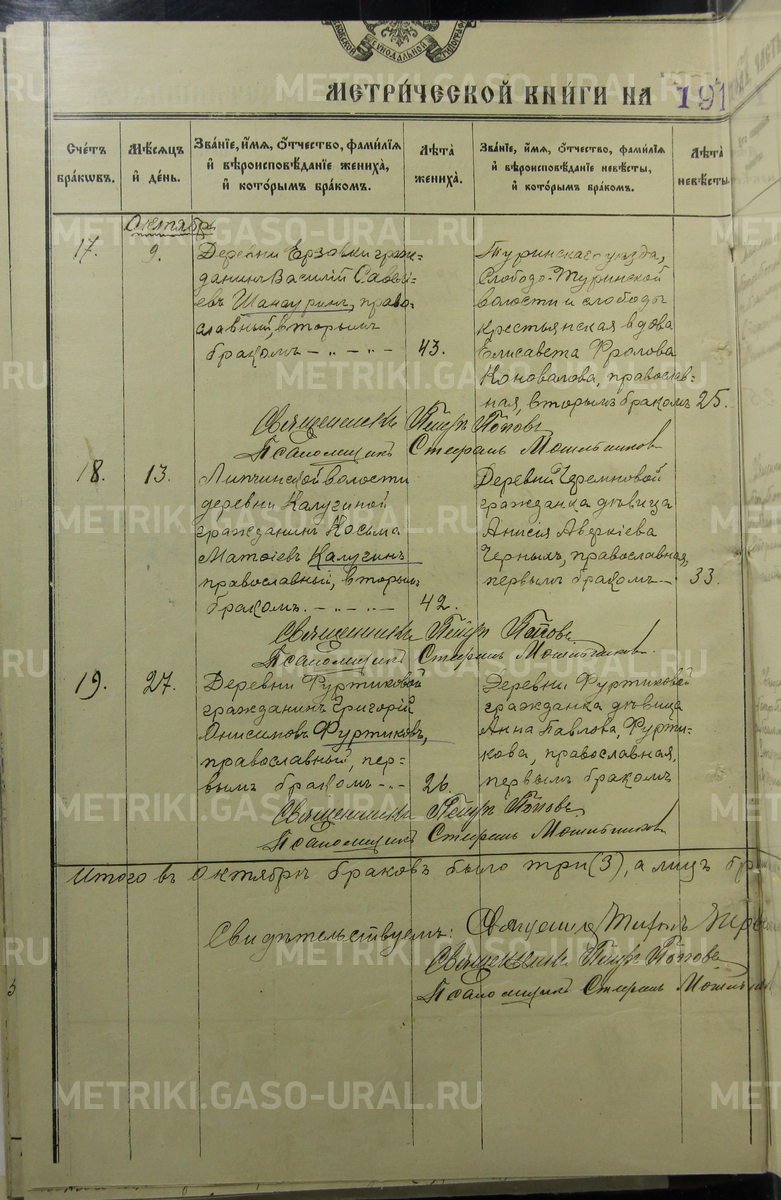 СУНОДАЛЬНОЙ ТИПОГРАФІИ
МЕТРИ́ЧЕСКОЙ КНИ́ГИ НА 191
Сче́тъ бра́кѡвъ.
Мѣ́сѧцъ и҆ де́нь.
Зва́нїе, и҆́мѧ, ѻ҆́тчество, фами́лїѧ и҆ вѣроисповѣ́данїе жениха̀, и҆ кото́рымъ бра́комъ.
Лѣ́та жениха̀.
Зва́нїе, и҆́мѧ, ѻ҆́тчество, фами́лїѧ и҆ вѣроисповѣ́данїе невѣ́сты, и҆ кото́рымъ бра́комъ.
Лѣ́та невѣ́сты.
Октябрь
17.
9.
Деревни Ерзовки граж-
данинъ Василій Савв
евъ Шанауринъ, право-
славный, вторымъ
бракомъ — „ — „ —
43.
Туринскаго уѣзда,
Слободо-Туринской
волости и слободы
крестьянская вдова
Елисавета Фролова
Коновалова, православ-
ная, вторымъ бракомъ
25.
Священникъ Петръ Поповъ
Псаломщикъ Стефанъ
18.
13.
Липчинской волости
деревни Калугиной
гражданинъ Косьма
Матѳіевъ Калугинъ
православный, вторымъ
бракомъ. — „ — „ —
42.
Деревни Черемновой
гражданка дѣвица
Анисія Аверкіева
Черныхъ, православная,
первымъ бракомъ —
33.
Священникъ Петръ Поповъ
Псаломщикъ Стефанъ
19.
27.
Деревни Фуртиковой
гражданинъ Григорій
Онисимовъ Фуртиковъ,
православный, пер-
вымъ бракомъ — „ —
26.
Деревни Фуртиковой
гражданка дѣвица
Анна Павлова, Фурти-
кова, православная,
первымъ бракомъ
Священникъ Петръ Поповъ
Псаломщикъ Стефанъ
Итого въ Октябрѣ браковъ было три (3), а лицъ бр
Свидѣтельствуемъ: Священникъ
Священникъ Петръ Поповъ
Псаломщикъ Стефанъ
METRIKI.GASO-URAL.RU